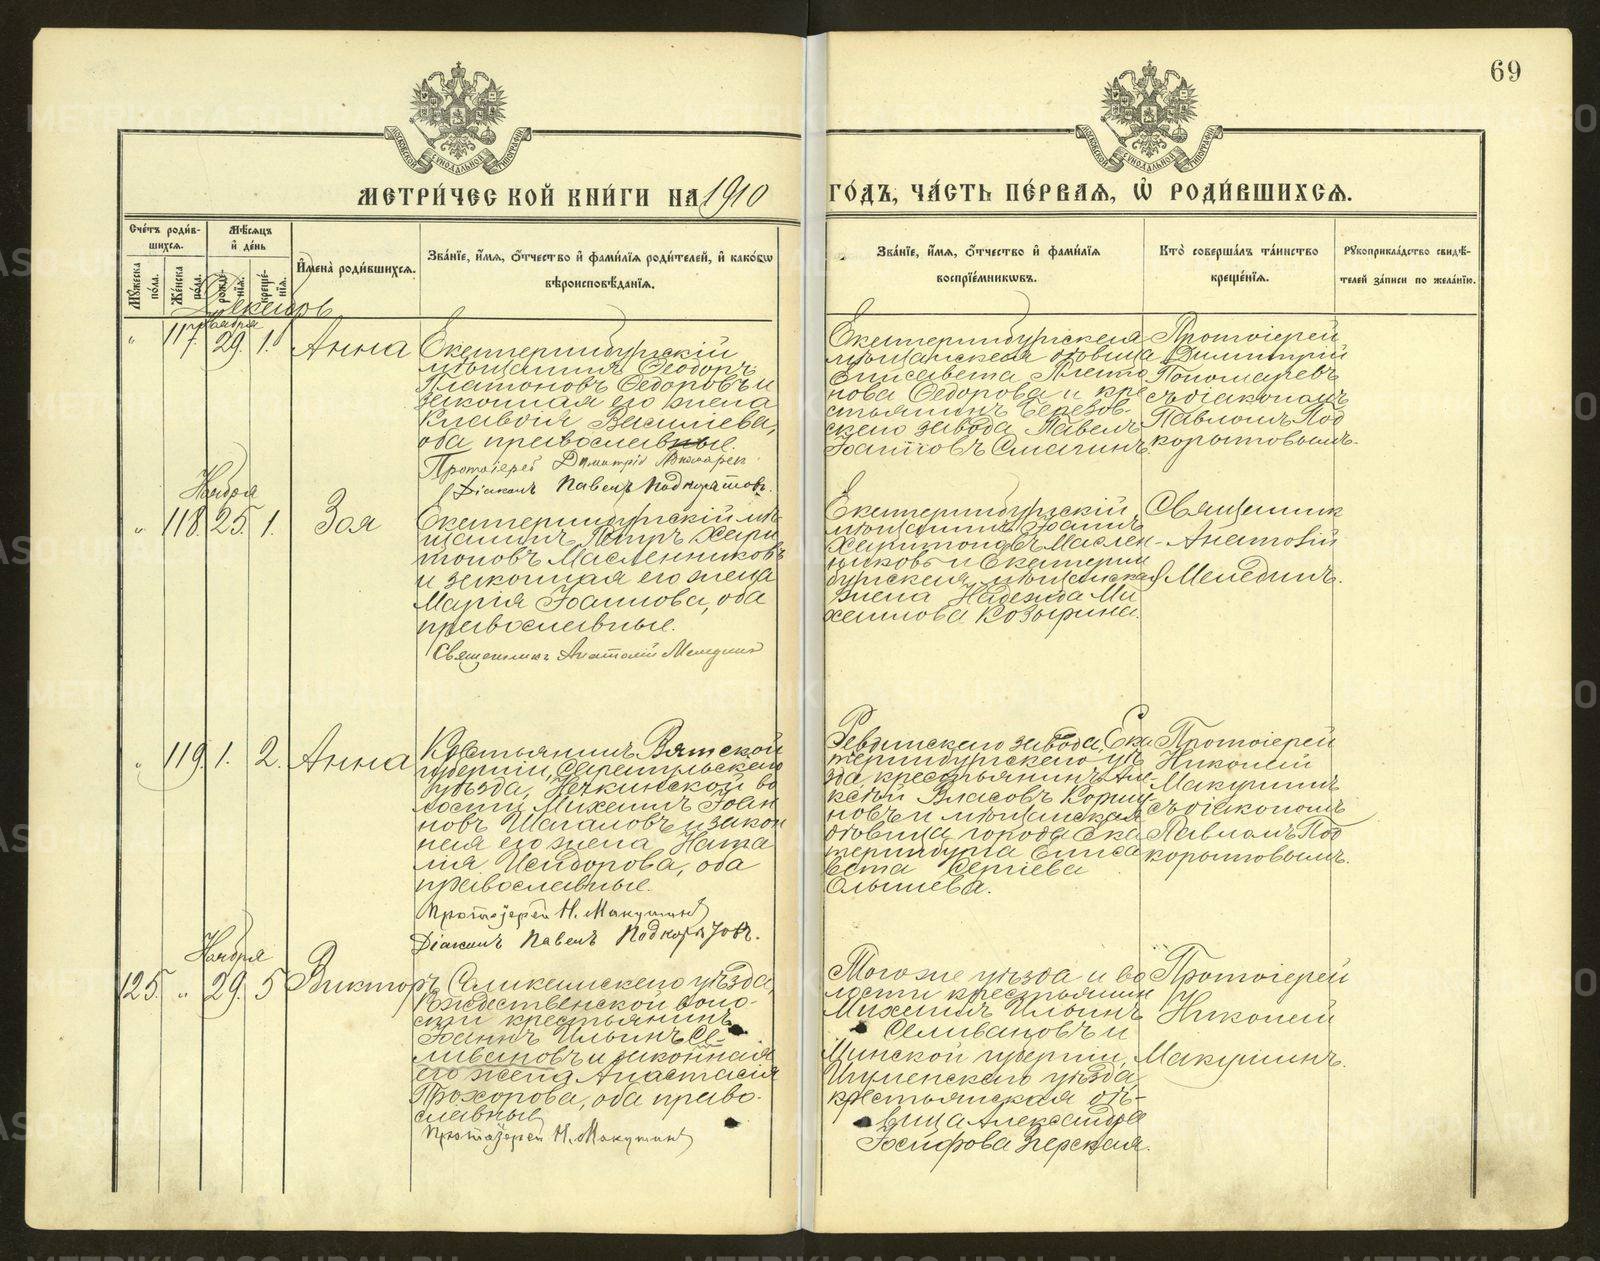 69
МОСКОВСКОЙ СѴНОДАЛЬНОЙ ТИПОГРАФІИ
МОСКОВСКОЙ СѴНОДАЛЬНОЙ ТИПОГРАФІИ
МЕТРИ́ЧЕСКОЙ КНИ́ГИ НА 1910
ГО́ДЪ, ЧА́СТЬ ПЕ́РВАЯ, Ѡ҆ РОДИ́ВШИХСѦ.
Сче́тъ роди́в-
шихсѧ.
Мꙋ́жеска
по́ла.
Же́нска
по́ла.
Мѣ́сѧцъ
и҆ де́нь
рожде́-
нїѧ.
креще́-
нїѧ.
И҆мена̀ роди́вшихсѧ.
Зва́нїе, и҆́мѧ, ѻ҆́тчество и҆ фами́лїѧ роди́телей, и҆ како́гѡ
вѣроисповѣ́данїѧ.
Зва́нїе, и҆́мѧ, ѻ҆́тчество и҆ фами́лїѧ
воспрїе́мникѡвъ.
Кто̀ соверша́лъ та́инство
креще́нїѧ.
Рꙋкоприкла́дство свидѣ́-
телей за́писи по жела́нїю.
Декабрь
Ноября
" 117. 29. 1. Анна
Екатеринбургскій
мѣщанинъ Ѳеодоръ
Платоновъ Ѳедоровъ и
законная его жена
Клавдія Васильева,
оба православные.
Протоіерей Димитрій Пономарев
Діаконъ Павелъ Подкорытовъ.
Екатеринбургская
мѣщанская дѣвица
Елисавета Плато
нова Ѳедорова и кре
стьянинъ Березов-
скаго завода Павелъ
Іоанновъ Смагинъ.
Протоіерей
Димитрій
Пономаревъ
съ діакономъ
Павломъ Под
корытовымъ.
Ноября
" 118. 25. 1. Зоя
Екатеринбургскій мѣ-
щанинъ Петръ Хари
тоновъ Масленниковъ
и законная его жена
Марія Іоаннова, оба
православные.
Священникъ Анатолій Меледин
Екатеринбургскій
мѣщанинъ Іоаннъ
Харитоновъ Маслен-
никовъ и Екатерин
бургская мѣщанская
жена Надежда Ми
хаилова Козырина.
Священник
Анатолій
Мелединъ.
" 119. 1. 2. Анна
Крестьянинъ Вятской
губерніи, Сарапульскаго
уѣзда, Нечкинской во
лости Михаилъ Іоан
новъ Шагаловъ и закон
ная его жена Ната
лія Исидорова, оба
православные.
Протоіерей Н. Макушинъ
Діаконъ Павелъ Подкорытовъ.
Ревдинскаго завода, Ека
теринбургскаго уѣ
зда, крестьянинъ Але-
ксѣй Власовъ Корши
новъ и мѣщанская
дѣвица города Ека
теринбурга Елиса
вета Сергіева
Олышева.
Протоіерей
Николай
Макушинъ
съ діакономъ
Павломъ Под
корытовымъ.
Ноября
125. " 29. 5 Викторъ
Соликамскаго уѣзда,
Рождественской воло-
сти крестьянинъ
Іоаннъ Ильинъ Се-
ливановъ и законная
его жена Анастасія
Прохорова, оба право-
славные.
Протоіерей Н. Макушинъ
Того же уѣзда и во
лости крестьянин
Михаилъ Ильинъ
Селивановъ и
Минской губерніи,
Игуменскаго уѣзда,
крестьянская дѣ-
вица Александра
Іосифова Зерская.
Протоіерей
Николай
Макушинъ.
METRIKI.GASO-URAL.RU